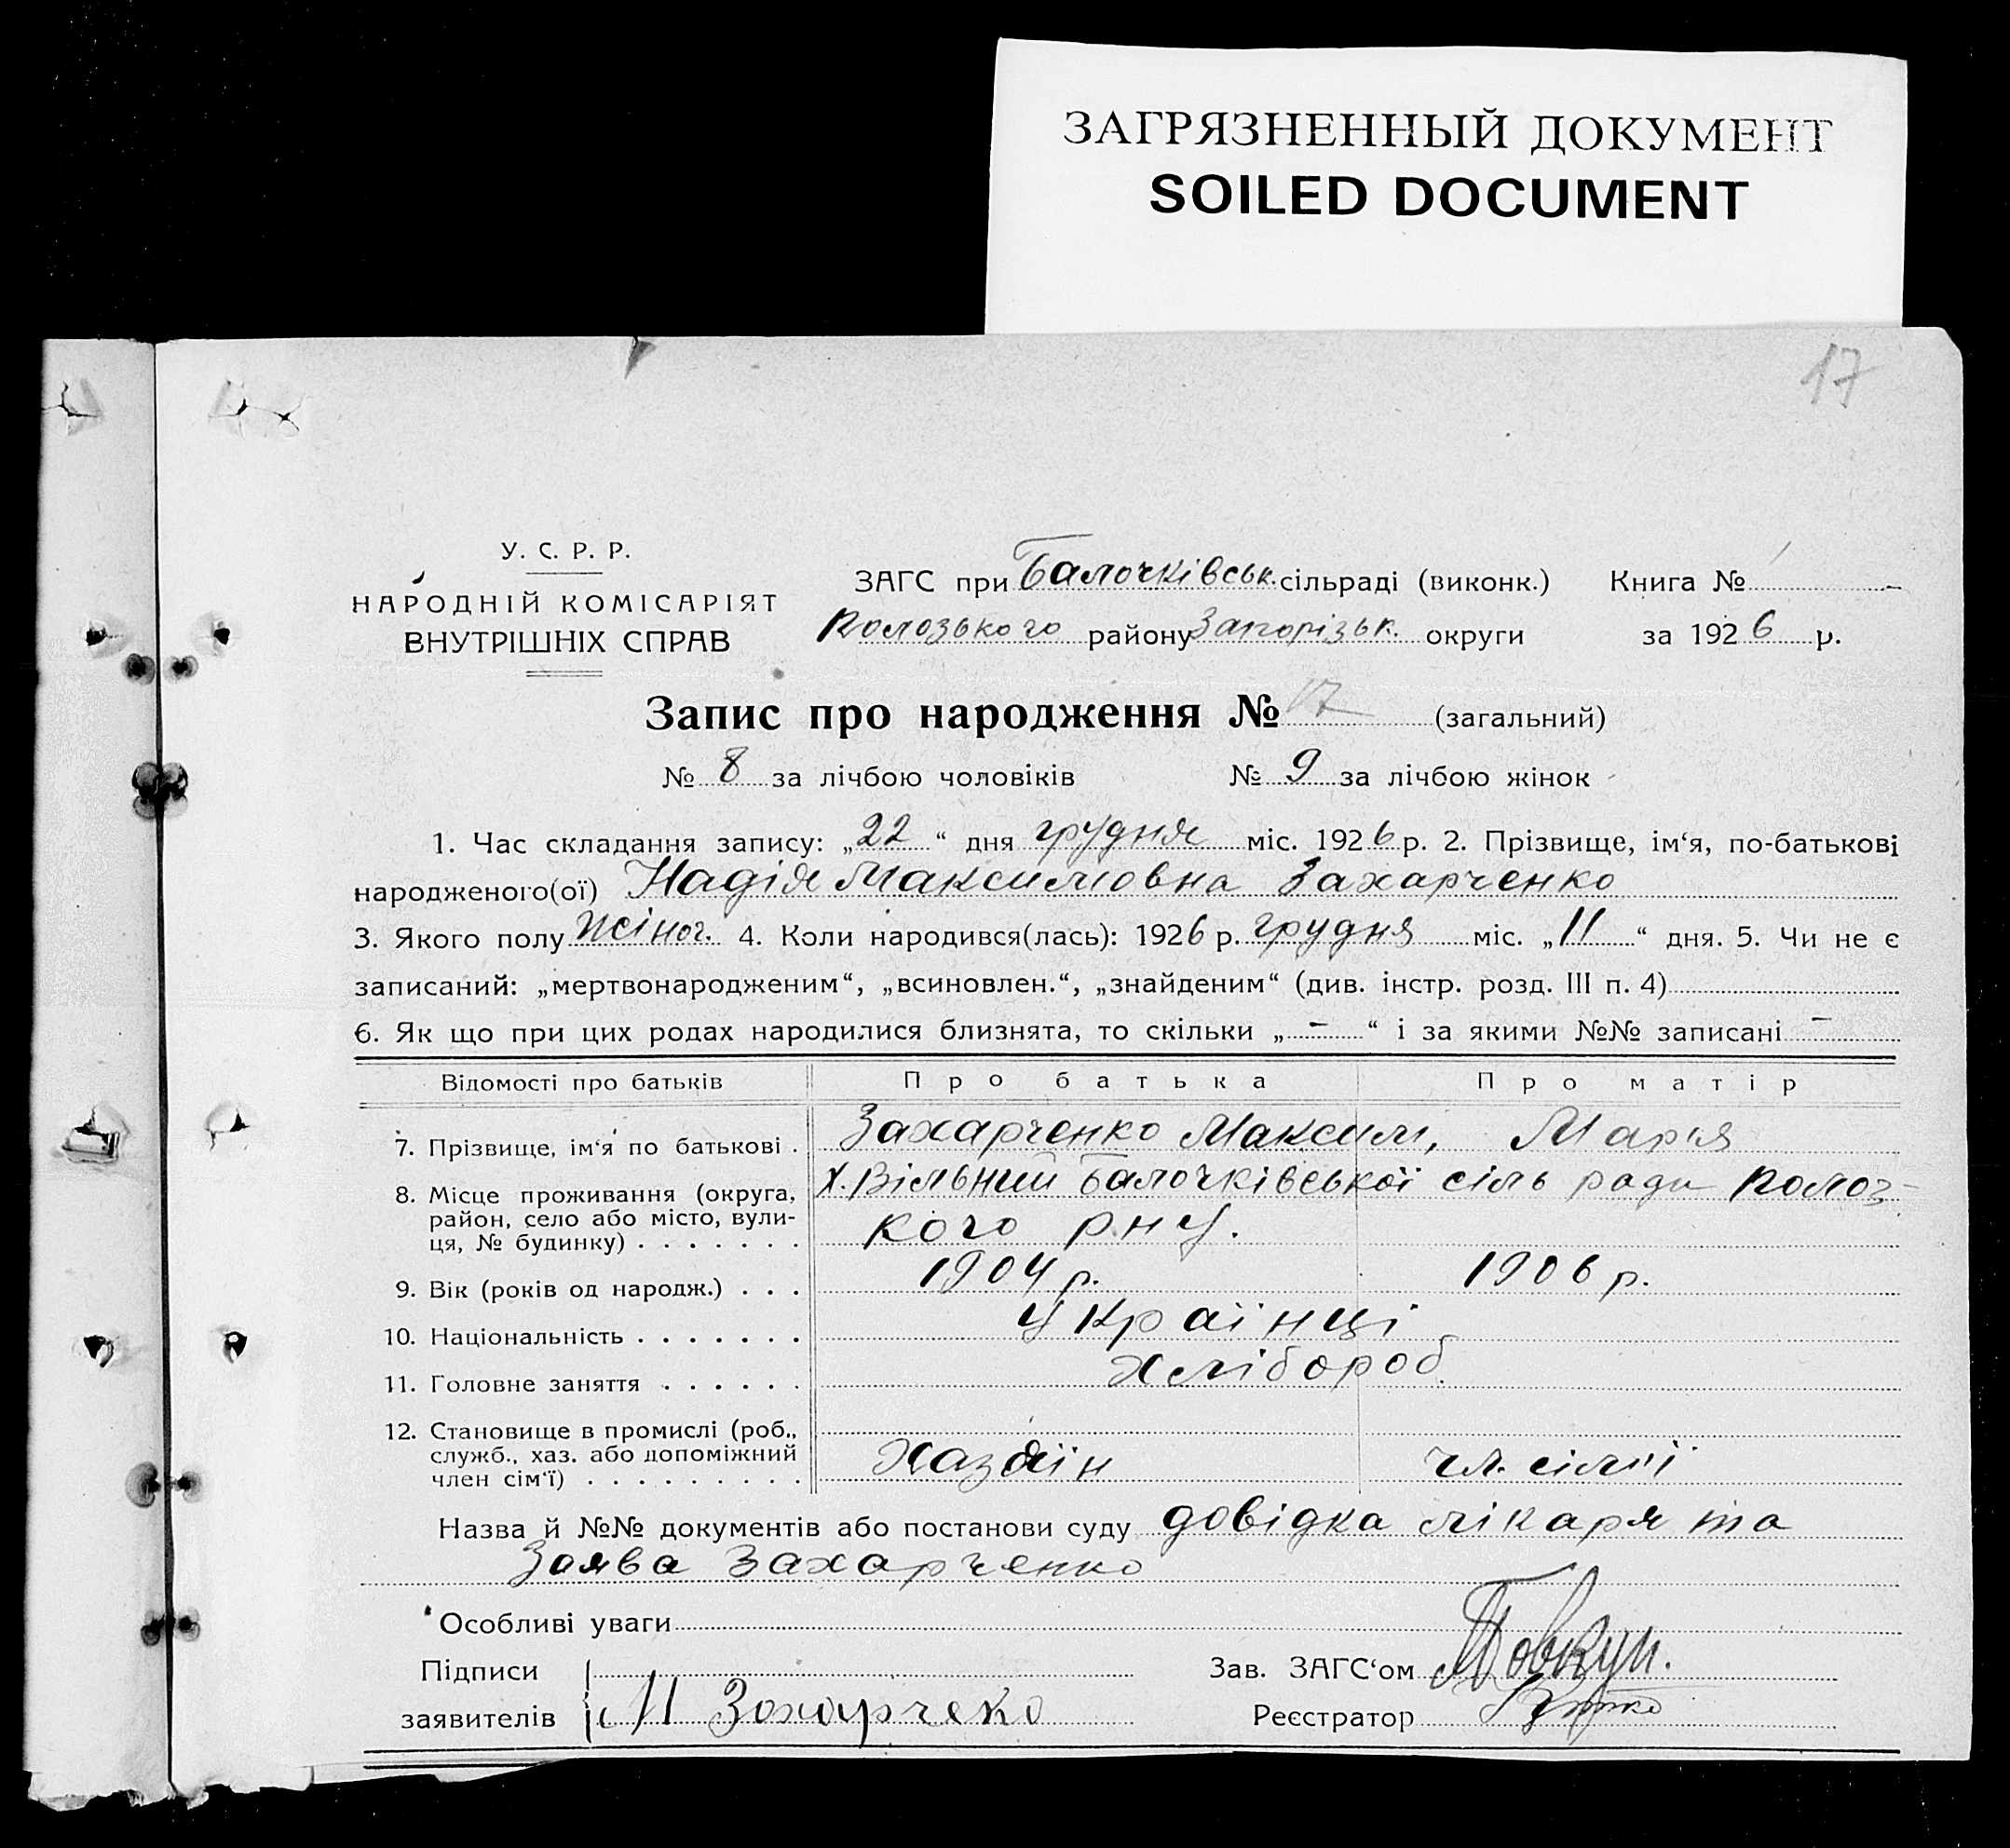 ЗАГРЯЗНЕННЫЙ ДОКУМЕНТ
SOILED DOCUMENT
17
У. С. Р. Р.
НАРОДНІЙ КОМІСАРІЯТ
ВНУТРІШНІХ СПРАВ
ЗАГС при Балочківськ. сільраді (виконк.) Книга №
Колозького району Запорізьк. округи за 1926 р.
Запис про народження № 17 (загальний)
№ 8 за лічбою чоловіків № 9 за лічбою жінок
1. Час складання запису: „22“ дня грудня міс. 1926 р. 2. Прізвище, ім‘я, по-батькові
народженого(ої) Надія Максимовна Захарченко
3. Якого полу жіноч. 4. Коли народився(лась): 1926 р. грудня міс. „11“ дня. 5. Чи не є
записаний: „мертвонародженим“, „всиновлен.“, „знайденим“ (див. інстр. розд. III п. 4)
6. Як що при цих родах народилися близнята, то скільки „-“ і за якими №№ записані -
Відомості про батьків Про батька Про матір
7. Прізвище, ім‘я по батькові . Захарченко Максим, Марія
8. Місце проживання (округа, Х. Вільний Балочківської сіль ради Колоз-
район, село або місто, вули-
ця, № будинку) . . . . . . . кого рну.
9. Вік (років од народж.) . . . 1904 р. 1906 р.
10. Національність . . . . . . . Українці
11. Головне заняття . . . . . . Хлібороб.
12. Становище в промислі (роб.,
служб., хаз. або допоміжний Хазяїн чл. сімї
член сім‘ї) . . . . . . . . .
Назва й №№ документів або постанови суду довідка лікаря та
Заява Захарченко
Особливі уваги
Підписи Зав. ЗАГС‘ом
заявителів М Захарчеко Реєстратор